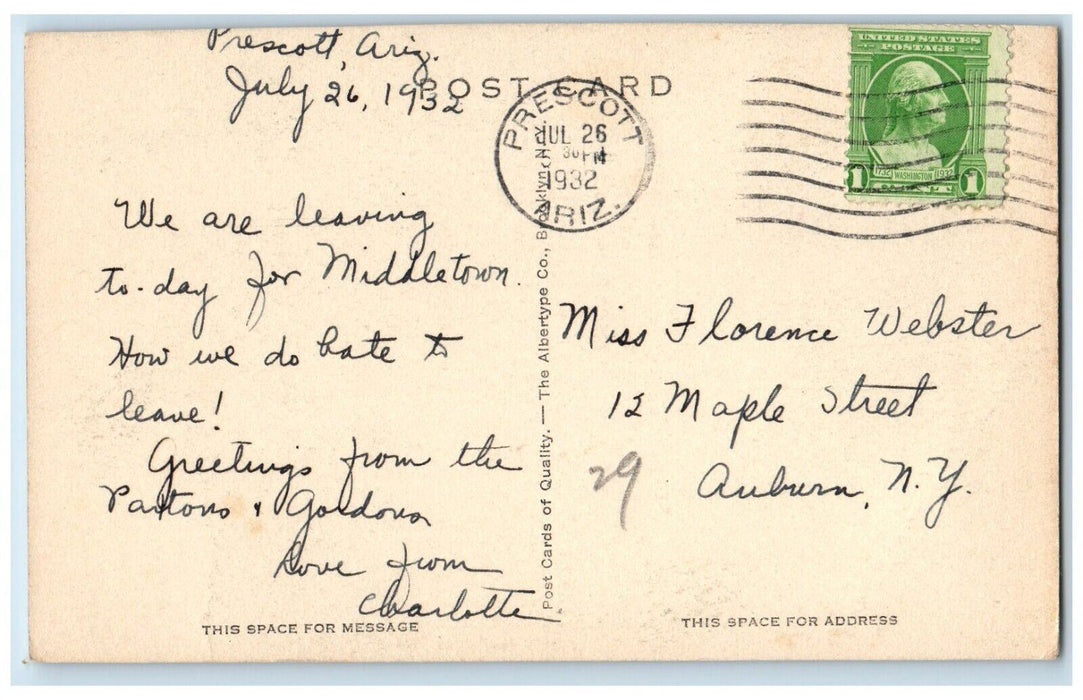 Prescott, Ariz.
July 26, 1932
POST CARD
PRESCOTT
JUL 26
30 PM
1932
ARIZ.
UNITED STATES
POSTAGE
1732 WASHINGTON 1932
1 1
We are leaving
to-day for Middletown.
How we do hate to
leave!
Greetings from the
Partons & Gordons
Love from
Charlotte
THIS SPACE FOR MESSAGE
Post Cards of Quality. — The Albertype Co., Brooklyn, N.Y.
Miss Florence Webster
12 Maple Street
Auburn, N.Y.
29
THIS SPACE FOR ADDRESS